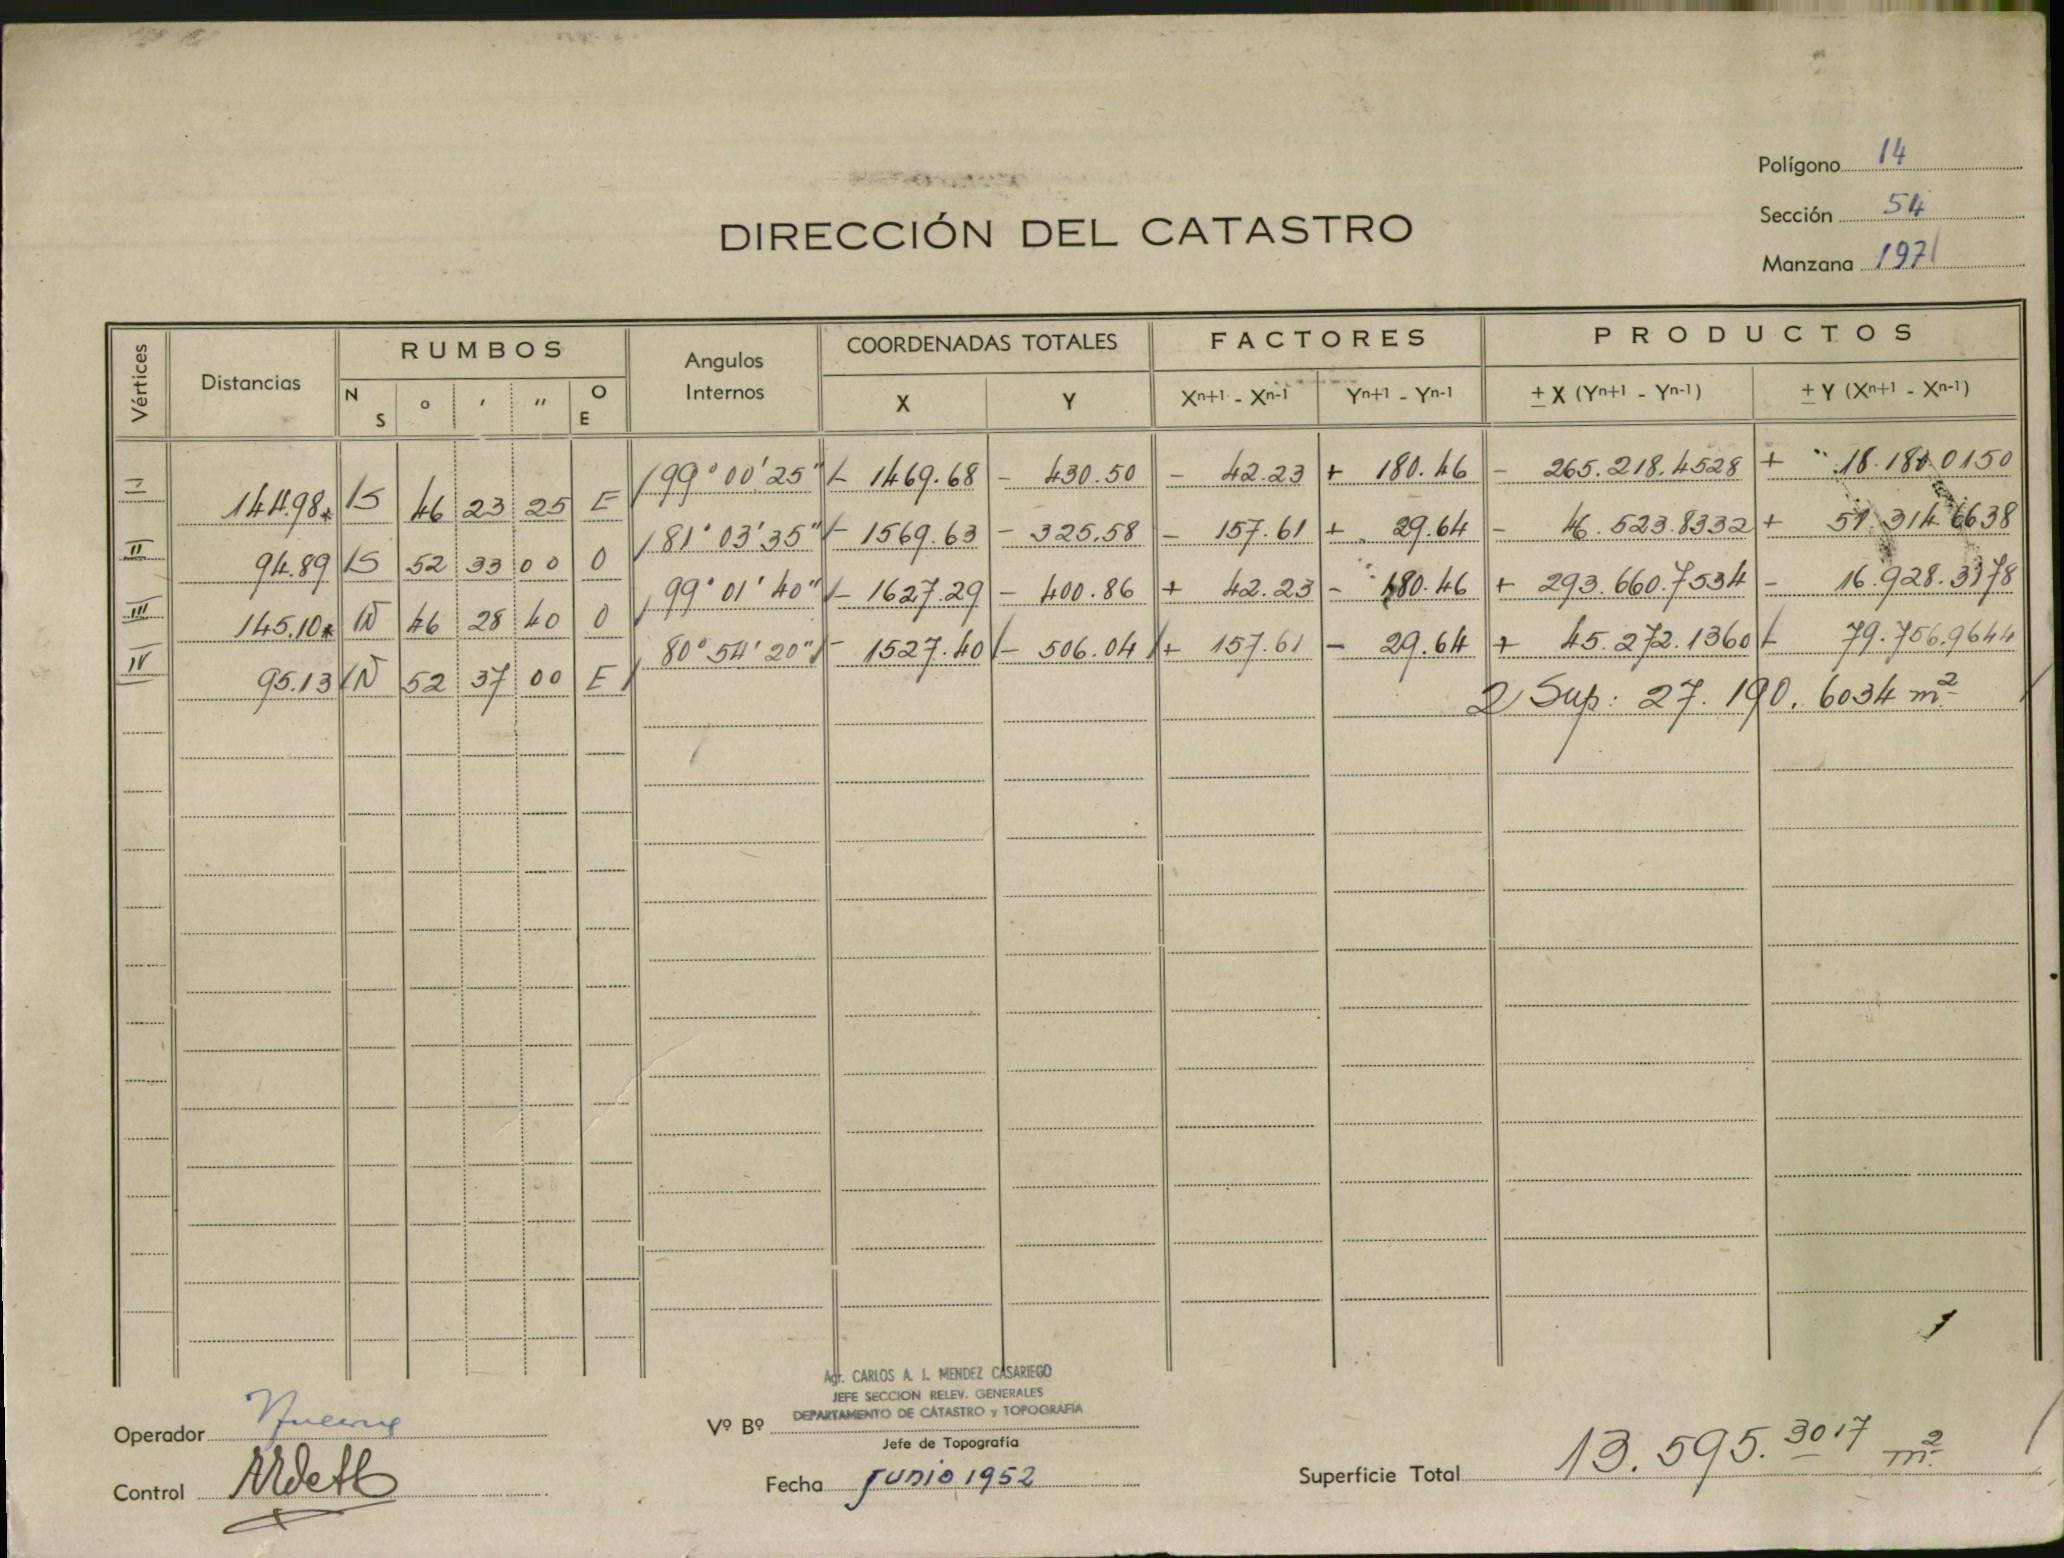 Polígono 14
Sección 54
Manzana 1971
DIRECCIÓN DEL CATASTRO
Vértices Distancias RUMBOS Angulos Internos COORDENADAS TOTALES FACTORES PRODUCTOS
N S ° ′ ″ O E X Y Xn+1 - Xn-1 Yn+1 - Yn-1 ± X (Yn+1 - Yn-1) ± Y (Xn+1 - Xn-1)
I 144.98* S 46 23 25 E 99° 00' 25" - 1469.68 - 430.50 - 42.23 + 180.46 - 265.218.4528 + 18.180.0150
II 94.89 S 52 33 00 O 81° 03' 35" - 1569.63 - 325.58 - 157.61 + 29.64 - 46.523.8332 + 51.314.6638
III 145.10* N 46 28 40 O 99° 01' 40" - 1627.29 - 400.86 + 42.23 - 180.46 + 293.660.7534 - 16.928.3178
IV 95.13 N 52 37 00 E 80° 54' 20" - 1527.40 - 506.04 + 157.61 - 29.64 + 45.272.1360 - 79.756.9644
2 Sup: 27.190.6034 m²
Agr. CARLOS A. J. MENDEZ CASARIEGO
JEFE SECCION RELEV. GENERALES
DEPARTAMENTO DE CATASTRO y TOPOGRAFIA
Operador
Vº Bº
Jefe de Topografía
Control
Fecha Junio 1952
Superficie Total 13.595.3017 m²